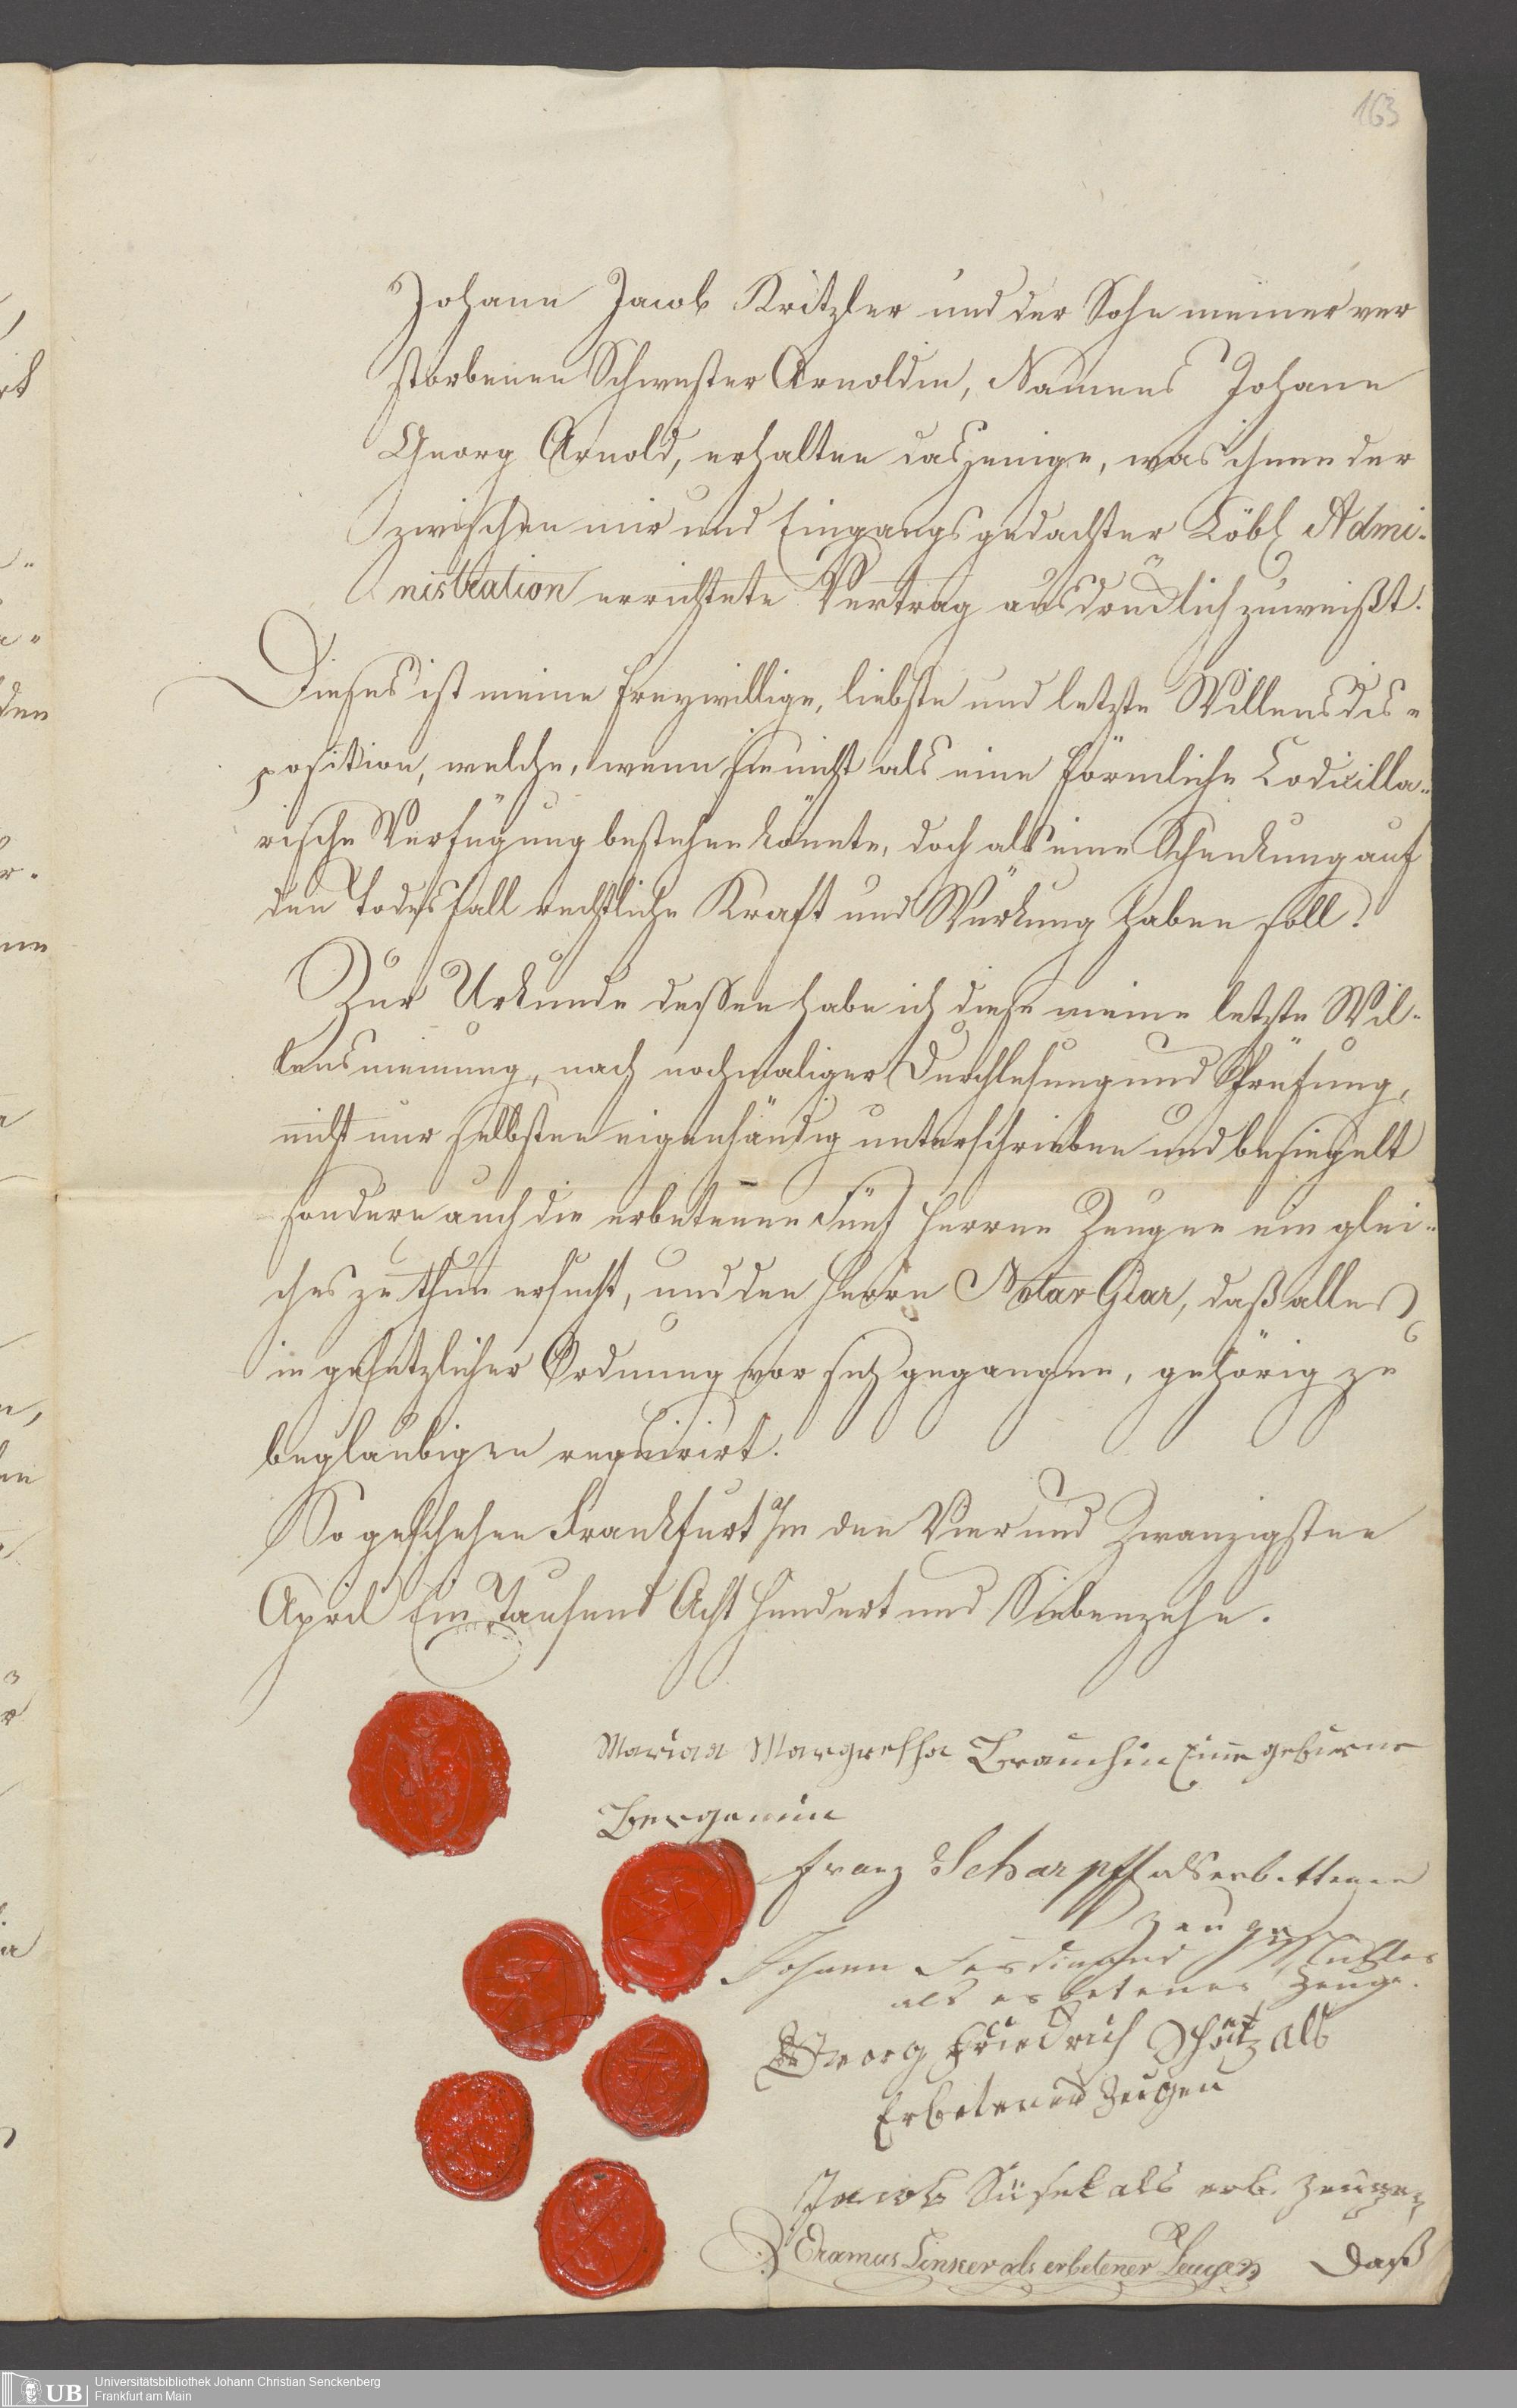 163
Johann Jacob Kritzler und der Sohn meiner ver
storbenen Schwester Arnoldin, Namens Johann
Georg Arnold, erhalten dasjenige, was ihnen der
zwischen mir und Eingangs gedachter Löbl Admi-
nistration errichtete Vertrag ausdrücklich zuweißt.
Dieses ist meine freywillige, liebste und letzte Willensdis-
position, welche, wenn sie nicht als eine förmliche Codicilla-
rische Verfügung bestehen könnte, doch als eine Schenkung auf
den Todesfall rechtliche Kraft und Würkung haben soll.
Zur Urkunde dessen habe ich diese meine letzte Wil-
lensmeinung, nach nochmaliger Durchlesung und Prüfung,
nicht nur selbsten eigenhändig unterschrieben und besiegelt
sondern auch die erbetenen Fünf Herren Zeugen ein glei-
ches zu thun ersucht, und den Herrn Notar Glar, daß alles
in gesetzlicher Ordnung vor sich gegangen, gehörig zu
beglaubigen requirirt.
So geschehen Frankfurt a/m den Vier und Zwanzigsten
April Ein Tausend Acht Hundert und Siebenzehn.
Maria Margretha Brauchin Eine geborne
Bergamin
Franz Scharpff als erbettener
Zeuge
Johann Ferdinand
als erbetener Zeuge.
Georg Friedrich Schütz als
Erbetener Zeugen
Jacob Süsel als erb. Zeuge
Erasmus Linker als erbetener Zeugen
Daß
Universitätsbibliothek Johann Christian Senckenberg
UB Frankfurt am Main